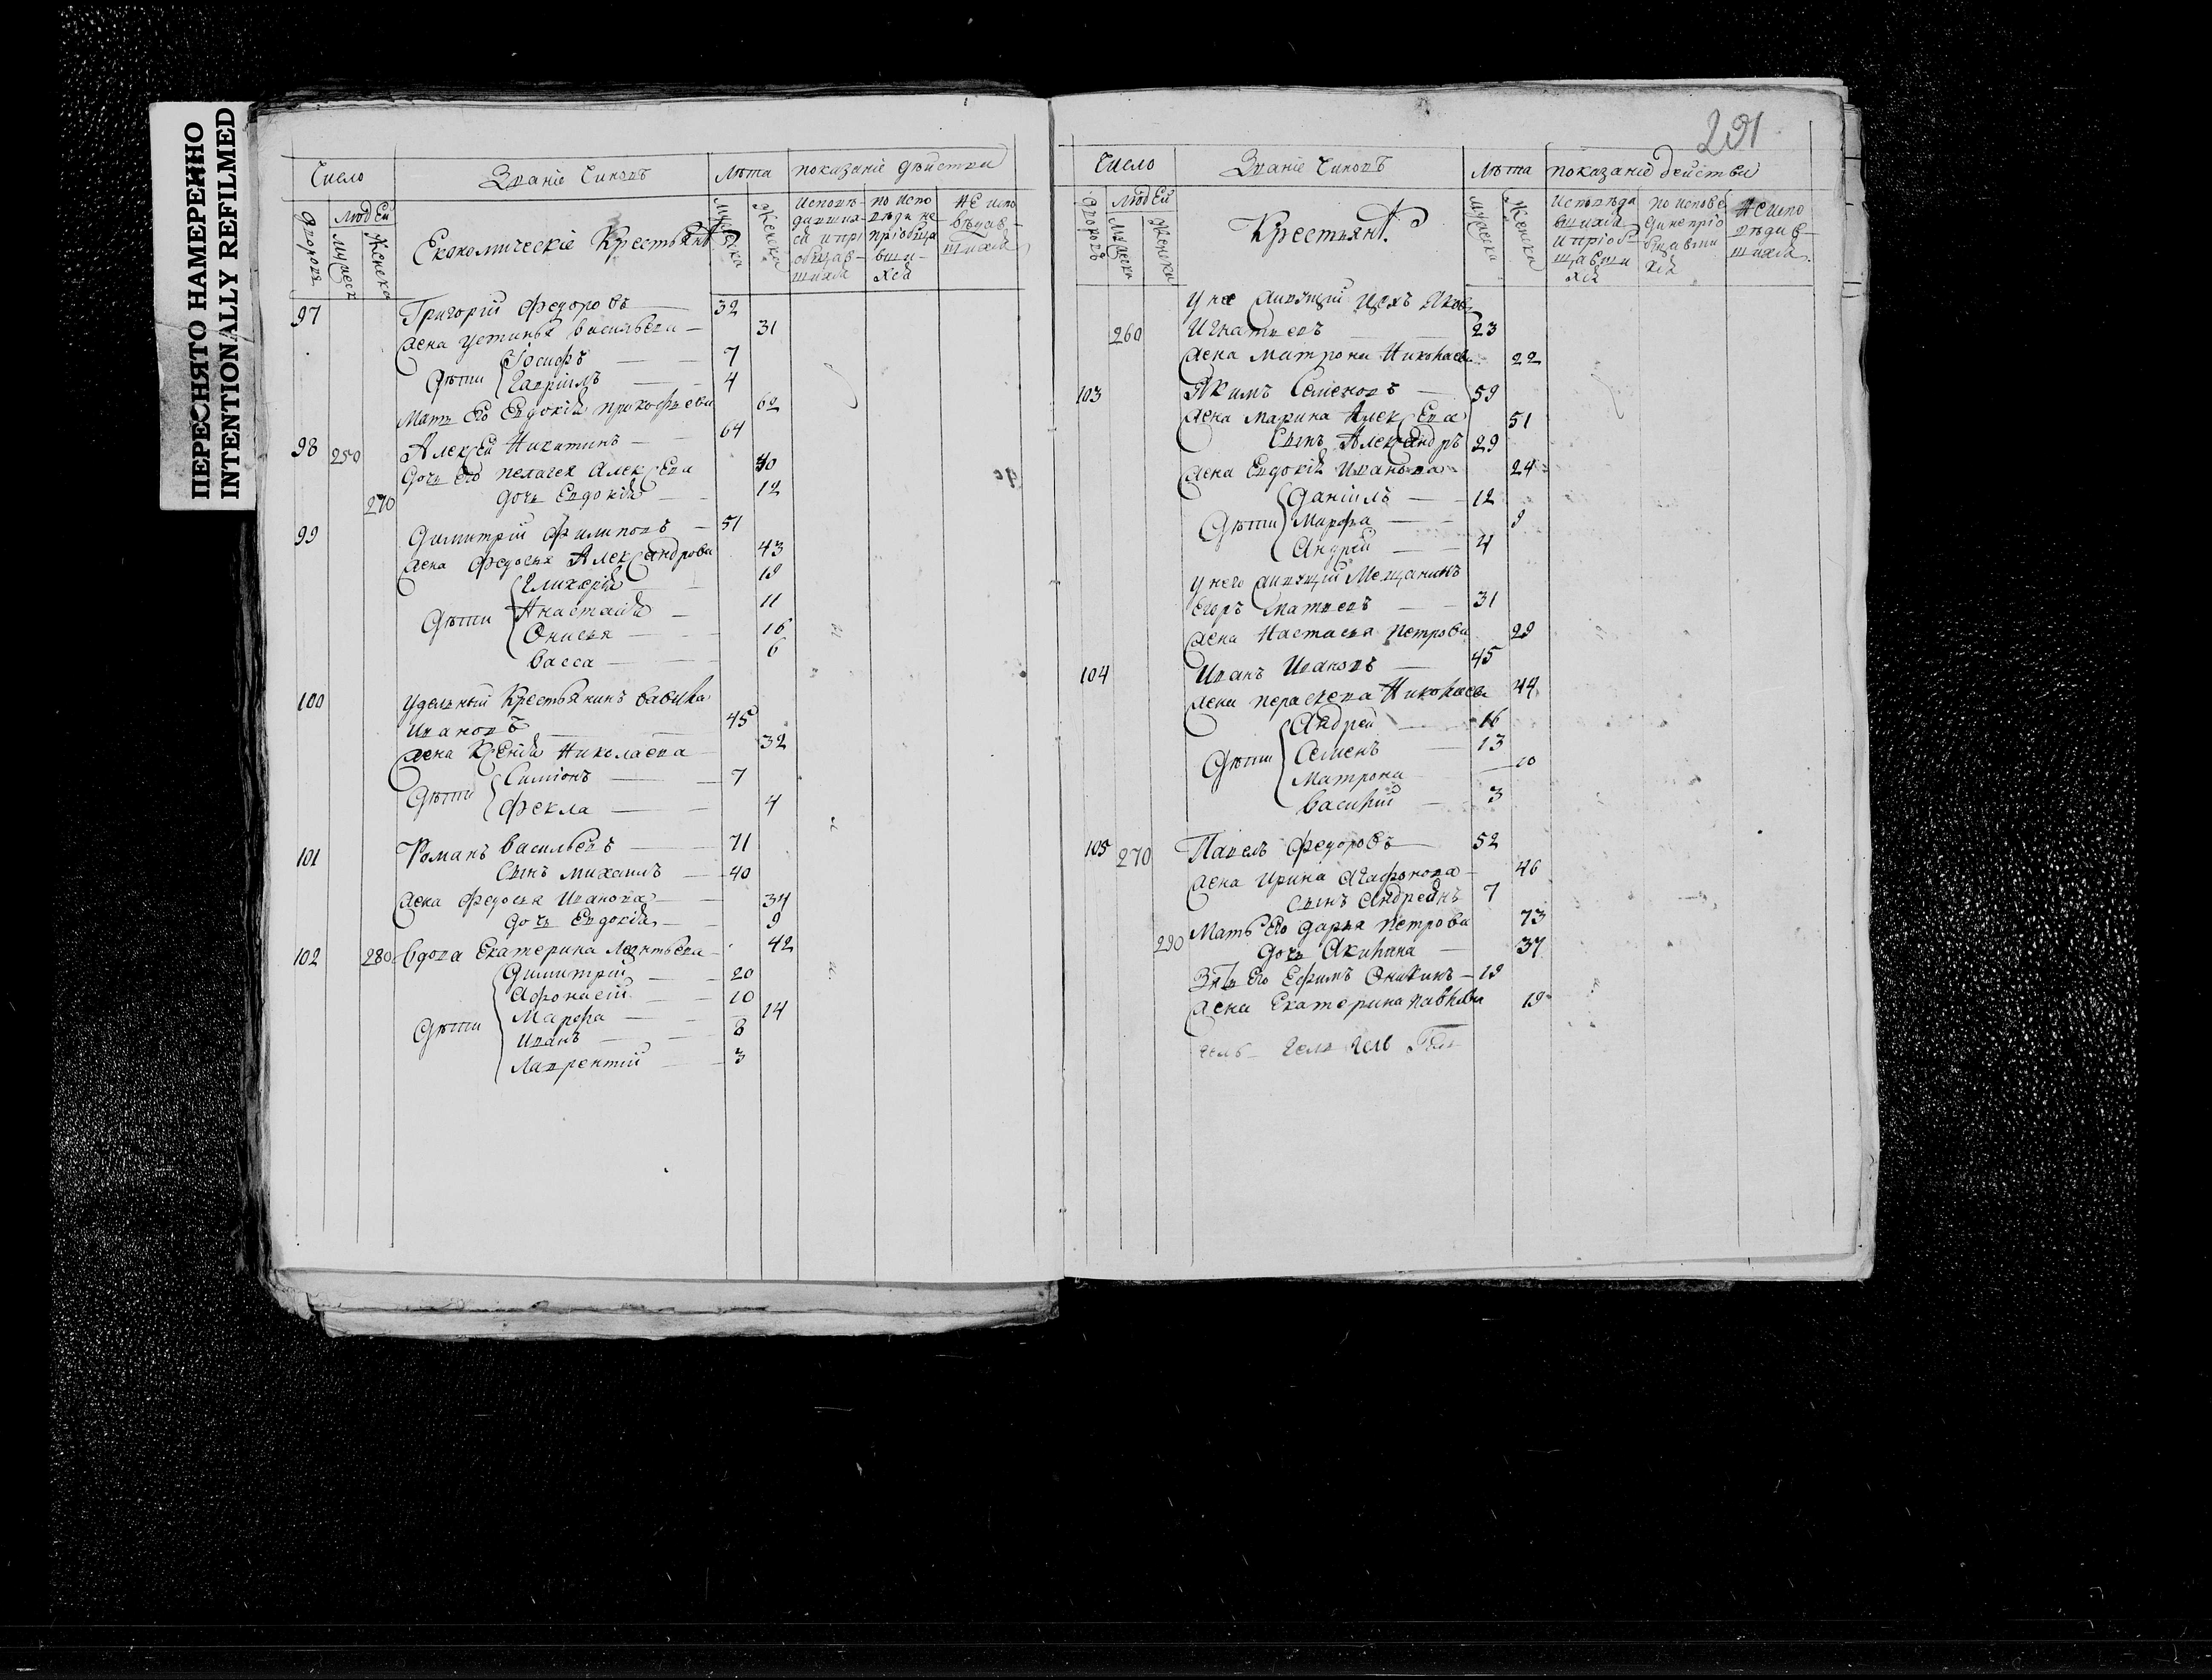 ПЕРЕСНЯТО НАМЕРЕННО
INTENTIONALLY REFILMED
Число Званіе Чиновъ Лѣта показаніе дѣйства
дворовъ людей мужеска женска Економическіе Крестьянѣ мужеска женска
исповѣдавшихся и пріобщавшихся
по исповѣди не пріобщавшихся
не исповѣдавшихся
97 Григорій Федоровъ — 32
жена Устинья Васильева — 31
дѣти Іосифъ — 7
Гавріилъ — 4
Мать Его Евдокія Прокофьева 62
98 250 Алексѣй Никитинъ — 64
дочь Его Пелагея Алексѣева 40
270 дочь Евдокія — 12
99 Димитрій Филиповъ — 51
жена Федосья Александрова 43
дѣти Гликерія — 19
Анастасія — 11
Онисья — 16
Васса — 6
100 Удельный Крестьянинъ Вавила
Ивановъ — 45
жена Ксенія Николаева 32
дѣти Симіонъ — 7
Фекла — 4
101 Романъ Васильевъ — 71
Сынъ Михаилъ — 40
жена Федосья Иванова — 34
дочь Евдокія — 9
102 280 Вдова Екатерина Леонтьева — 42
дѣти Димитрій — 20
Афонасій — 10
Марфа — 14
Иванъ — 8
Лаврентій — 3
291
Число Званіе Чиновъ Лѣта показаніе действи
дворовъ людей мужеска женска Крестьянѣ мужеска женска
исповѣдавшихся и пріобщавшихся
по исповеди не пріобщавшихся
не исповѣдавшихся
у нея живущій Яков
260 Игнатьевъ 23
жена Матрона Николаева 22
103 Якимъ Семеновъ — 59
жена Марина Алексѣева 51
Сынъ Александръ 29
жена Евдокія Иванова 24
дѣти Даніилъ — 12
Марфа — 9
Андрей — 4
у него живущій Мещанинъ
Егоръ Матвеевъ — 31
жена Настасья Петрова 29
104 Иванъ Ивановъ — 45
жена Перасковья Николаева 44
дѣти Андрей — 16
Семенъ — 13
Матрона — 10
Василій — 3
105 270 Павелъ Федоровъ — 52
жена Ирина Агафонова — 46
сынъ Андреянъ 7
Мать Его Дарья Петрова 73
290 дочь Акилина — 37
Зять Его Ефимъ Оникинъ — 19
жена Екатерина Павлова 19